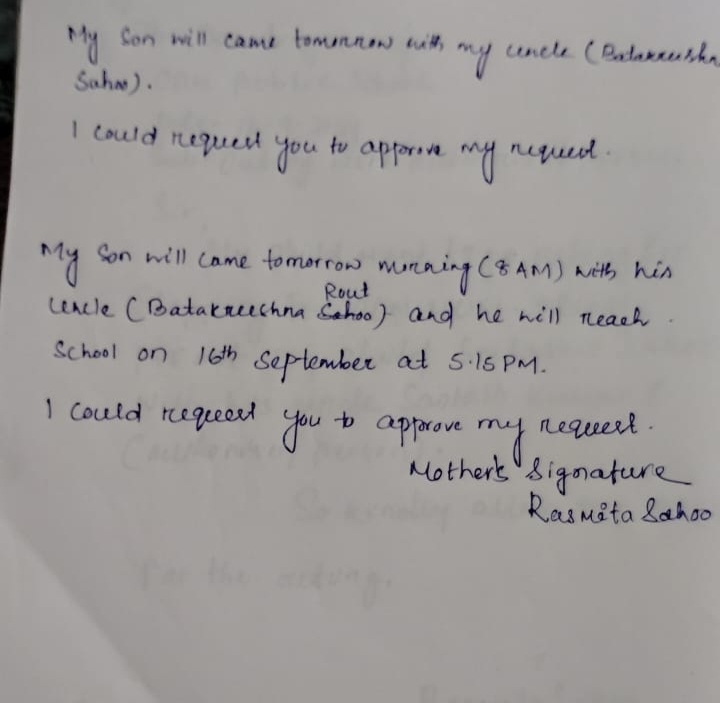 My Son will came tomorrow with my uncle (Batakrushna
Sahoo).
I could request you to approve my request.
My Son will came tomorrow morning (8 AM) with his
Rout
Uncle (Batakreechna Sahoo) and he will reach
School on 16th September at 5.15 PM.
I could request you to approve my request.
Mother's Signature
Rasmita Sahoo